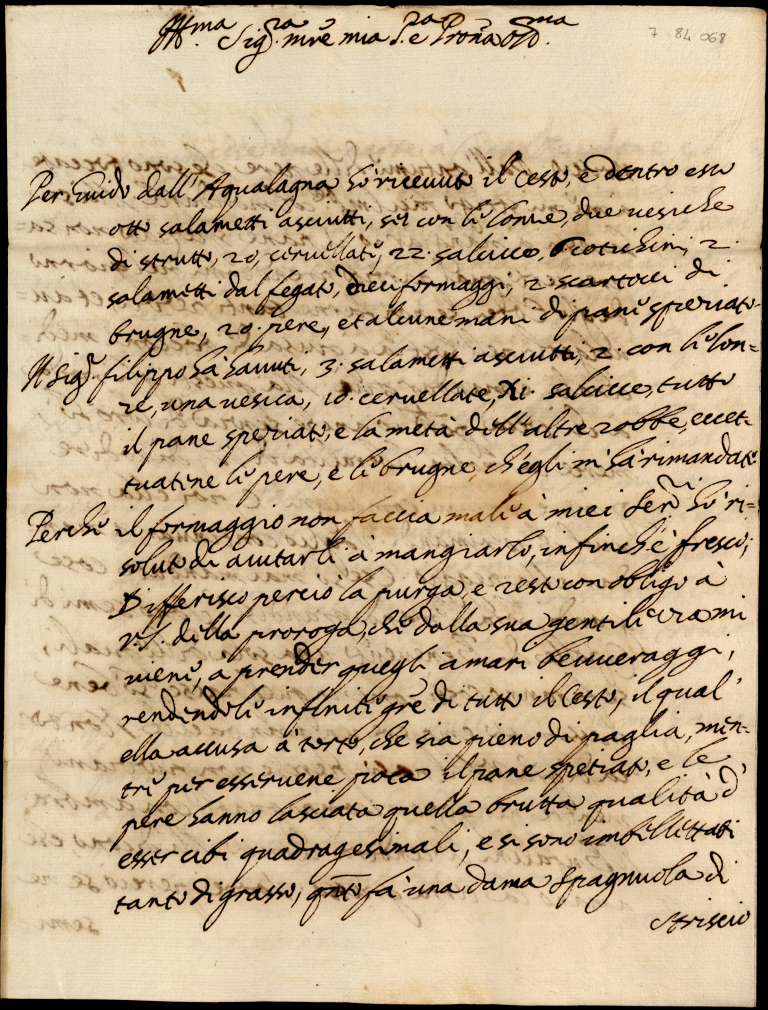 Ill.ma Sig.ra mrē mia S.ra e Prōna oss.ma
7 84 068
Per Guido dall'Aqualagna hò riceuuto il Cesto, e dentro esso
otto salametti asciutti, sei con le lonze, due uesiche
di strutto, 20, ceruellate, 22. salcicce, 6 cotichini, 2.
salametti dal fegato, dieci formaggi, 2 scartocci di
brugne, 20. pere, et alcune mani di pane speziato.
Il Sig.r filippo hà hauuti, 3. salametti asciutti, 2. con le lon=
ze, una uesica, 10. ceruellate, Xi. salcicce, tutto
il pane speziato, e la metà dell'altre robbe, eccet=
tuatene le pere, e le brugne, ch'egli m'hà rimandate.
Perche il formaggio non faccia male à miei Ser.ri hò ri=
soluto di aiutarli à mangiarlo, infinch'è fresco;
Differisco perciò la purga, e resto con obligo à
V.S. della proroga, che dalla sua gentilezza mi
uiene, a prender quegli amari beuueraggi;
rendendole infinite gr̄e di tutto il Cesto, il qual'
ella accusa à torto, che sia pieno di paglia, men=
tre per esseruene poca il pane spetiato, e le
pere hanno lasciata quella brutta qualità d'
esser cibi quadragesimali, e si sono imbellettati
tanto di grasso, qnto fà una dama Spagnuola di
striscio